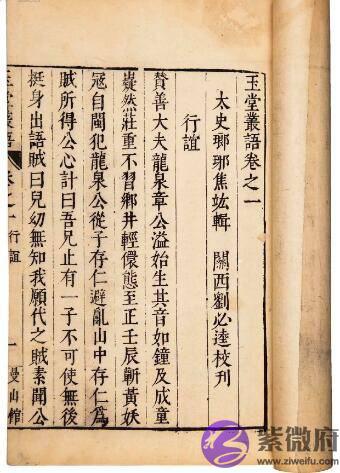 玉堂叢語卷之一
太史瑯琊焦竑輯 關西劉必達校刋
行誼
賛善大夫龍泉章公溢始生其音如鐘及成童
嶷然莊重不習鄉井輕儇態至正壬辰蘄黃妖
寇自閩犯龍泉公從子存仁避亂山中存仁爲
賊所得公心計曰吾兄止有一子不可使無後
挺身出語賊曰兒幼無知我願代之賊素聞公
玉堂叢語
卷之一 行誼
一
曼山館
紫微府
www.ziweifu.com